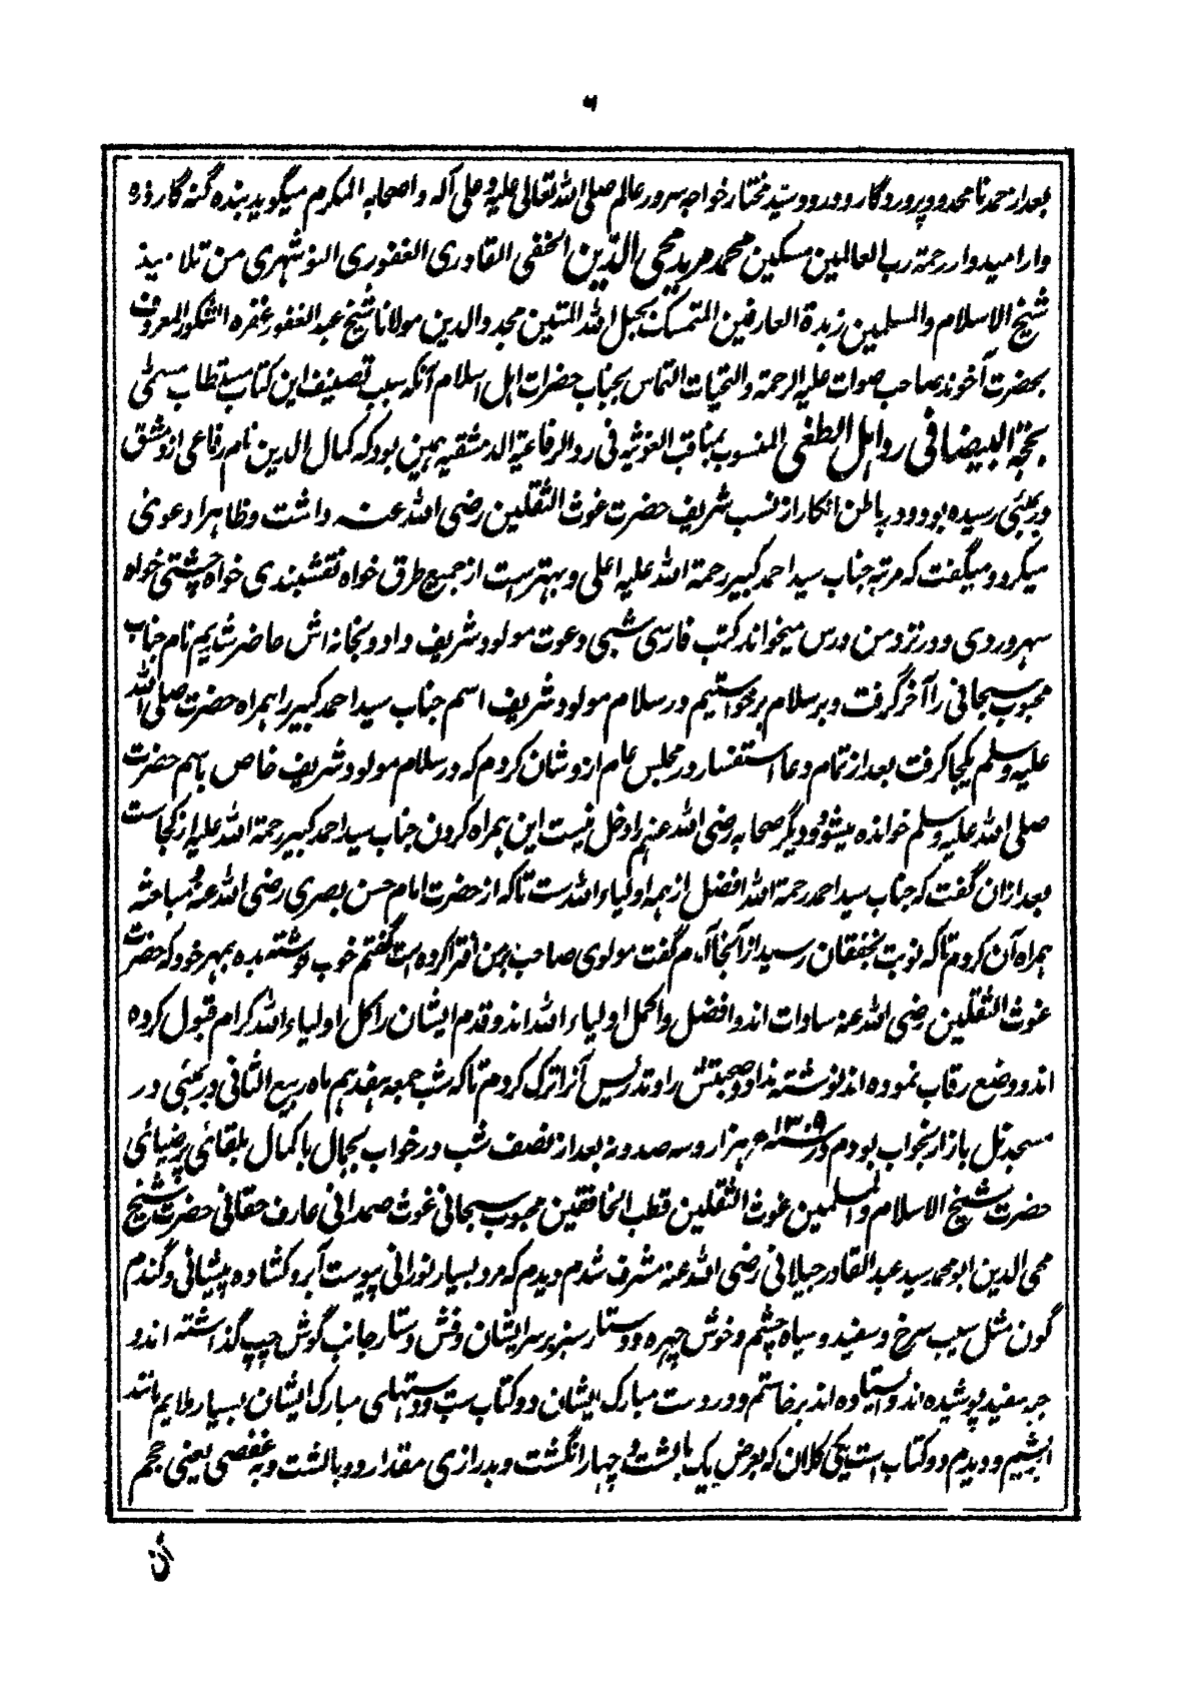 ۶
بعد از حمد نا محدود پروردگار و درود سید مختار خواجه سرور عالم صلی الله تعالی علیه و علی آله و اصحابه المکرم میگوید بنده گنه گار ذره
وار امیدوار رحمة رب العالمین مسکین محمد مرید محی الدین الحنفی القادری الغفوری النوشهری من تلامیذ
شیخ الاسلام والمسلمین زبدة العارفین المتمسک بحبل الله المتین مجدد الدین مولانا شیخ عبد الغفور غفره الشکور المعروف
بحضرت آخوند صاحب صوات علیه الرحمة والتحیات التماس بجناب حضرات اهل اسلام آنکه سبب تصنیف این کتاب مستطاب مسمی
بحجة البیضا فی رد اهل الطغی المنسوب بمناقب الغوثیه فی رد الرفاعیة الدمشقیه همین بود که کمال الدین نام رفاعی از دمشق
در بمبئی رسیده بود و در باطن انکار از نسب شریف حضرت غوث الثقلین رضی الله عنه داشت و ظاهرا دعوی
میکرد و میگفت که مرتبه جناب سید احمد کبیر رحمة الله علیه اعلی و بهتر ست از جمیع طرق خواه نقشبندی خواه چشتی خواه
سهروردی و در نزد من درس میخواند کتب فارسی شبی دعوت مولود شریف داد و بخانه اش حاضر شدیم نام جناب
محبوب سبحانی را آخر گرفت و بر سلام برخواستیم در سلام مولود شریف اسم جناب سید احمد کبیر را همراه حضرت صلی الله
علیه وسلم یکجا گرفت بعد از تمام دعا استفسار در مجلس عام از وشان کردم که در سلام مولود شریف خاص باسم حضرت
صلی الله علیه وسلم خوانده میشود و دیگر صحابه رضی الله عنهم را دخل نیست این همراه کردن جناب سید احمد کبیر رحمة الله علیه از کجاست
بعد ازان گفت که جناب سید احمد رحمة الله افضل از همه اولیاء الله ست تا که از حضرت امام حسن بصری رضی الله عنه مباحثه
همراه آن کردم تا که نوبت بخفقان رسید از آنجا آمدم گفت مولوی صاحب بر من افترا کرده است گفتم خوب نوشته بده بمهر خود که حضرت
غوث الثقلین رضی الله عنه سادات اند و افضل و اکمل اولیاء الله اند و قدم ایشان را کل اولیاء الله کرام قبول کرده
اند و وضع رقاب نموده اند نوشته نداد و صحبتش را و تدریس آنرا ترک کردم تا که شب جمعه هفدهم ماه ربیع الثانی در بمبئی در
مسجد نل بازار بخواب بودم در سنه ۱۳۰۹ هزار و سه صد و نه بعد از نصف شب در خواب بجمال با کمال بلقائی پرضیائی
حضرت شیخ الاسلام والمسلمین غوث الثقلین قطب الخافقین محبوب سبحانی غوث صمدانی عارف حقانی حضرت شیخ
محی الدین ابو محمد سید عبد القادر جیلانی رضی الله عنه مشرف شدم دیدم که مرد بسیار نورانی پیوست آبرو کشاده پیشانی و گندم
گون مثل سیب سرخ و سفید و سیاه چشم و خوش چهره و دستار سبز بر سر ایشان و فش دستار جانب گوش چپ گذاشته اند و
جبه سفید پوشیده اند و ایستاده اند برخاستم و در دست مبارک ایشان دو کتاب ست و دستهای مبارک ایشان بسیار ملایم مانند
ابریشیم و دیدم دو کتاب است یکی کلان که بعرض یک بالشت و چهار انگشت و بدرازی مقدار دو بالشت و به یعنی حجم
آن